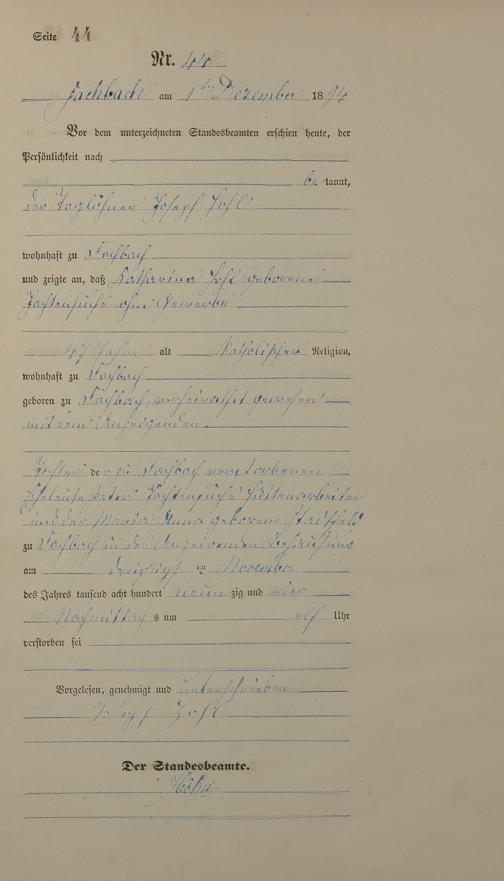 Seite 44
Nr. 44.
Fachbach am 1ten Dezember 1894
Vor dem unterzeichneten Standesbeamten erschien heute, der
Persönlichkeit nach
be kannt,
der Taglöhner Joseph Hohl
wohnhaft zu Fachbach
und zeigte an, daß Katharina Hohl geborene
ohne Gewerbe
Jahre alt katholischer Religion,
wohnhaft zu Fachbach
geboren zu Fachbach, verheirathet gewesen
mit dem Anzeigenden
Tochter der zu Fachbach verstorbenen
Eheleute Peter Hüttenarbeiter
und der Maria Anna geborene
zu Fachbach in des Anzeigenden Behausung
am dreißigsten November
des Jahres tausend acht hundert neun zig und vier
Nachmittag s um elf Uhr
verstorben sei
Vorgelesen, genehmigt und unterschrieben
Joseph Hohl
Der Standesbeamte.